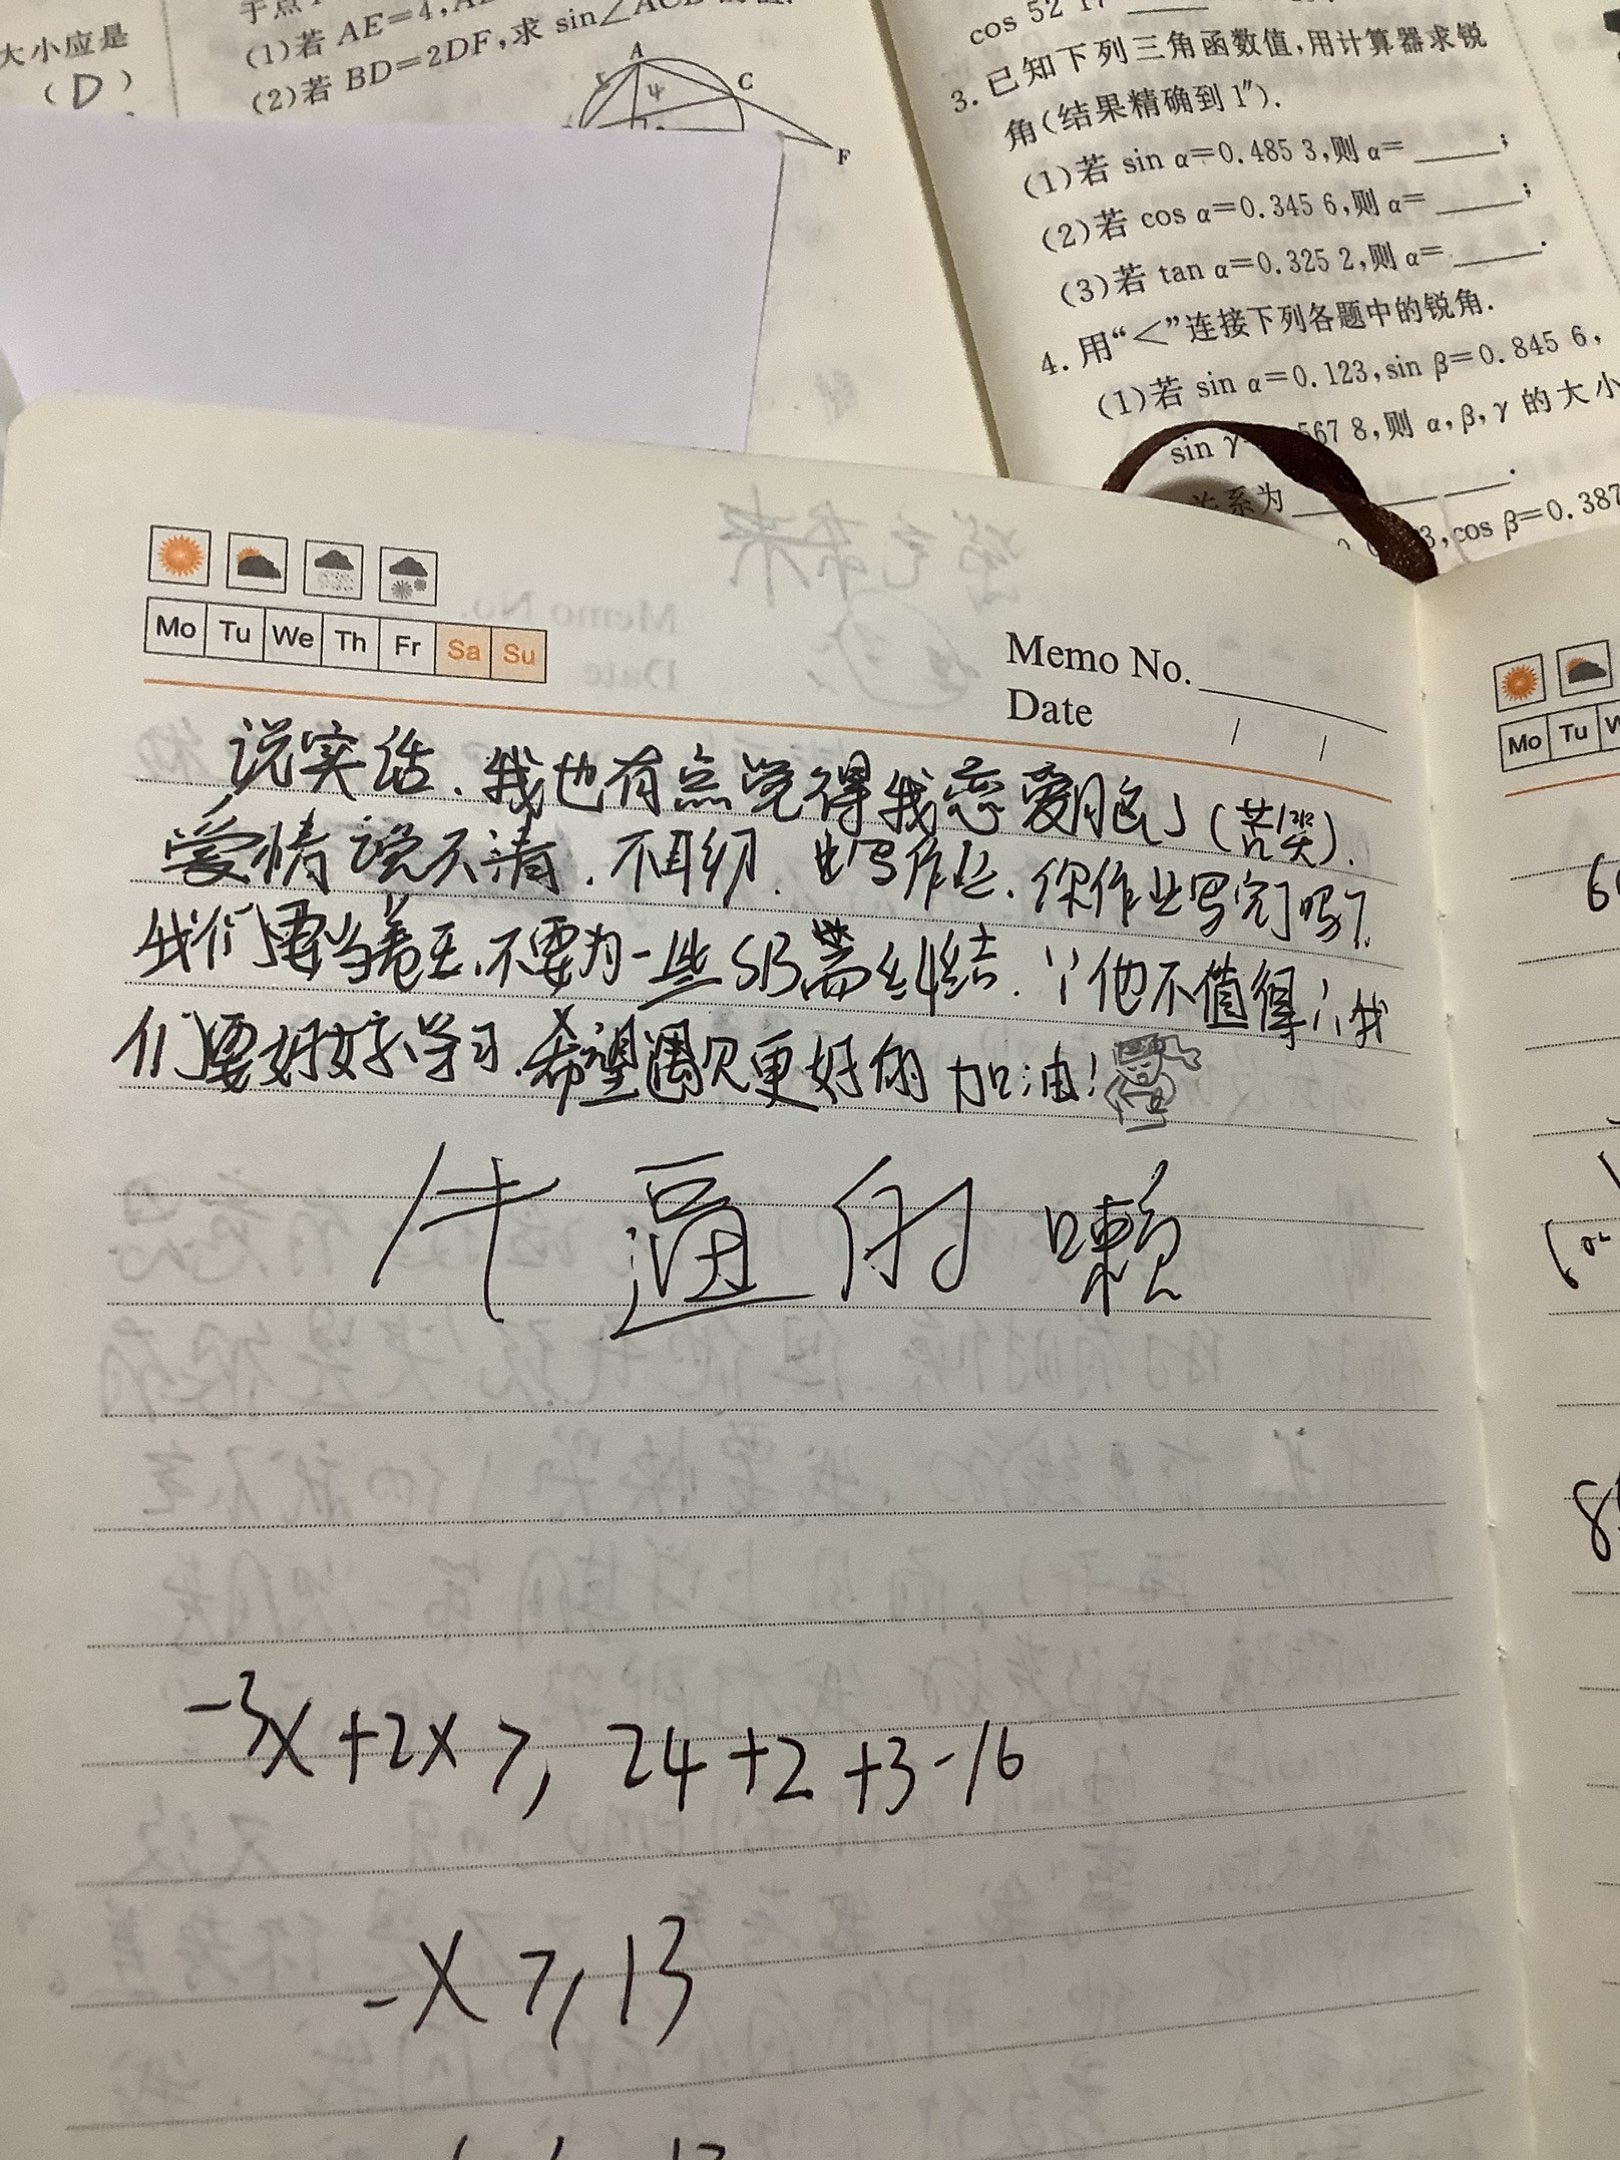 大小应是
(D)
(1)若 AE=4,
(2)若 BD=2DF,求 sin∠ACB
A
4
C
F
cos 52
3. 已知下列三角函数值,用计算器求锐
角(结果精确到 1″).
(1)若 sin α=0.485 3,则 α=____;
(2)若 cos α=0.345 6,则 α=____;
(3)若 tan α=0.325 2,则 α=____.
4. 用“<”连接下列各题中的锐角.
(1)若 sin α=0.123,sin β=0.845 6,
sin γ 567 8,则 α,β,γ 的大小
关系为____.
3,cos β=0.387
Mo Tu We Th Fr Sa Su
Memo No.
Date / /
说实话.我也有点觉得我恋爱脑了(苦笑).
爱情说不清.不用纠.先写作业.你作业写完了吗?
我们要当卷王.不要为一些SB 纠结.“他不值得”.我
们要好好学习.希望遇见更好的 加油!
牛逼的嘞
-3x+2x≥24+2+3-16
-x≥13
Mo Tu